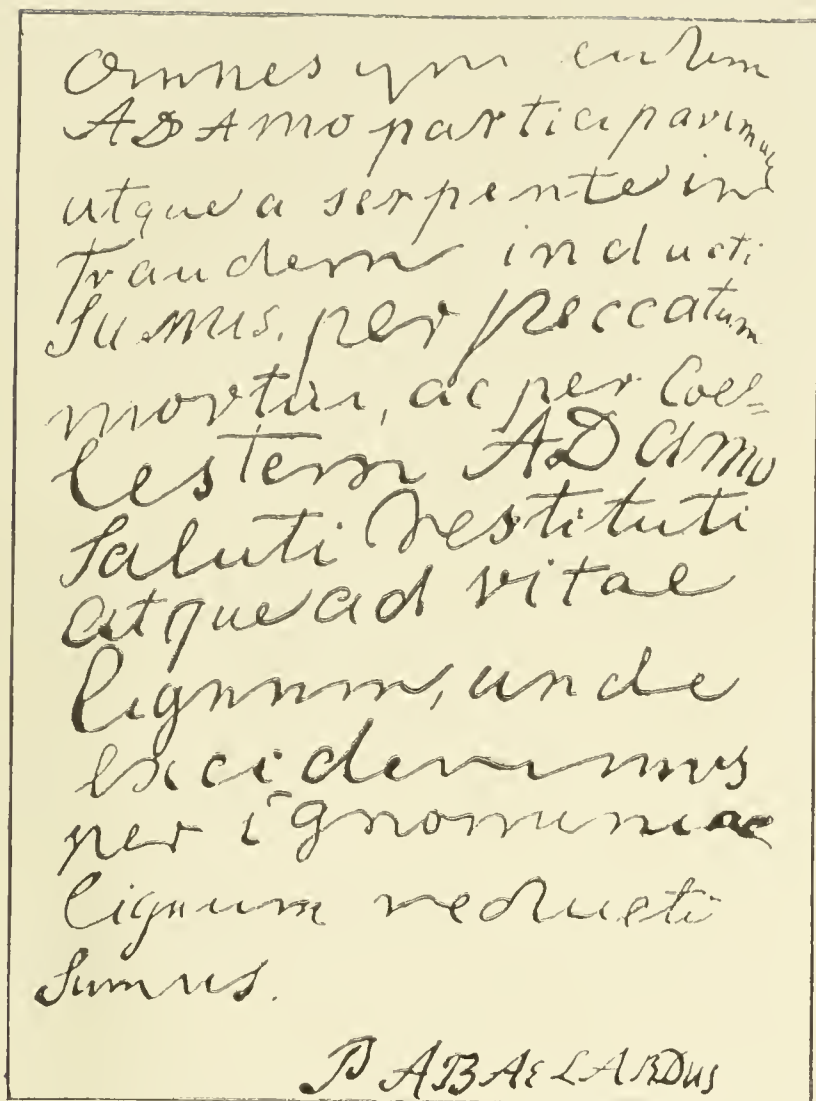 Omnes qui eidem
ADAMO participavimus
utque a serpente in
fraudem inducti
Sumus. per peccatum
mortui, ac per Coe=
lestem ADAmo
Saluti restituti
atque ad vitae
lignum, unde
excideramus
per ignominiae
lignum reducti
Sumus.
P ABAELARDus